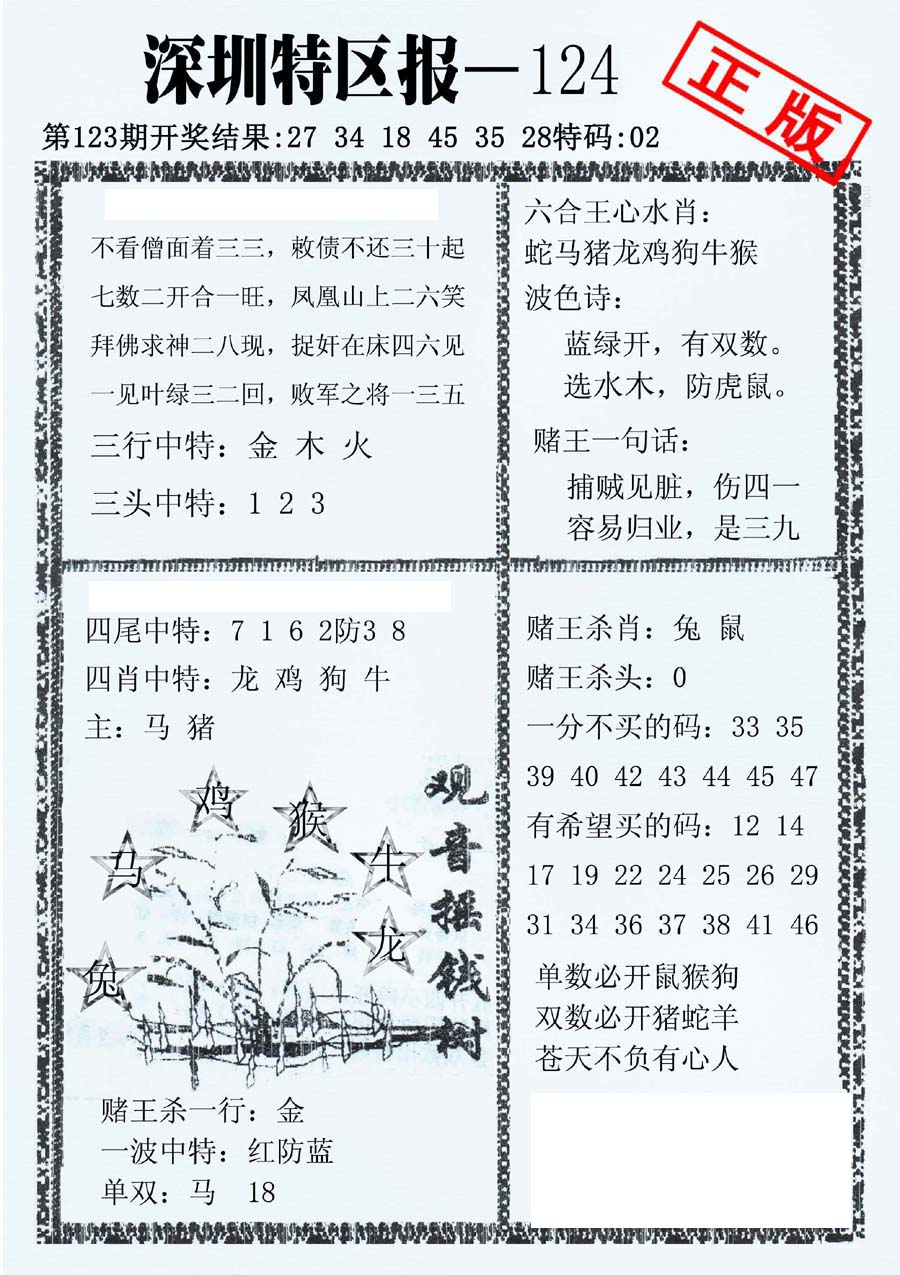 深圳特区报—124
正版
第123期开奖结果:27 34 18 45 35 28特码:02
不看僧面着三三，敕债不还三十起
七数二开合一旺，凤凰山上二六笑
拜佛求神二八现，捉奸在床四六见
一见叶绿三二回，败军之将一三五
三行中特：金 木 火
三头中特：1 2 3
六合王心水肖：
蛇马猪龙鸡狗牛猴
波色诗：
蓝绿开，有双数。
选水木，防虎鼠。
赌王一句话：
捕贼见脏，伤四一
容易归业，是三九
四尾中特：7 1 6 2防3 8
四肖中特：龙 鸡 狗 牛
主：马 猪
鸡
猴
马
牛
龙
兔
观音摇钱树
赌王杀一行：金
一波中特：红防蓝
单双：马 18
赌王杀肖：兔 鼠
赌王杀头：0
一分不买的码：33 35
39 40 42 43 44 45 47
有希望买的码：12 14
17 19 22 24 25 26 29
31 34 36 37 38 41 46
单数必开鼠猴狗
双数必开猪蛇羊
苍天不负有心人